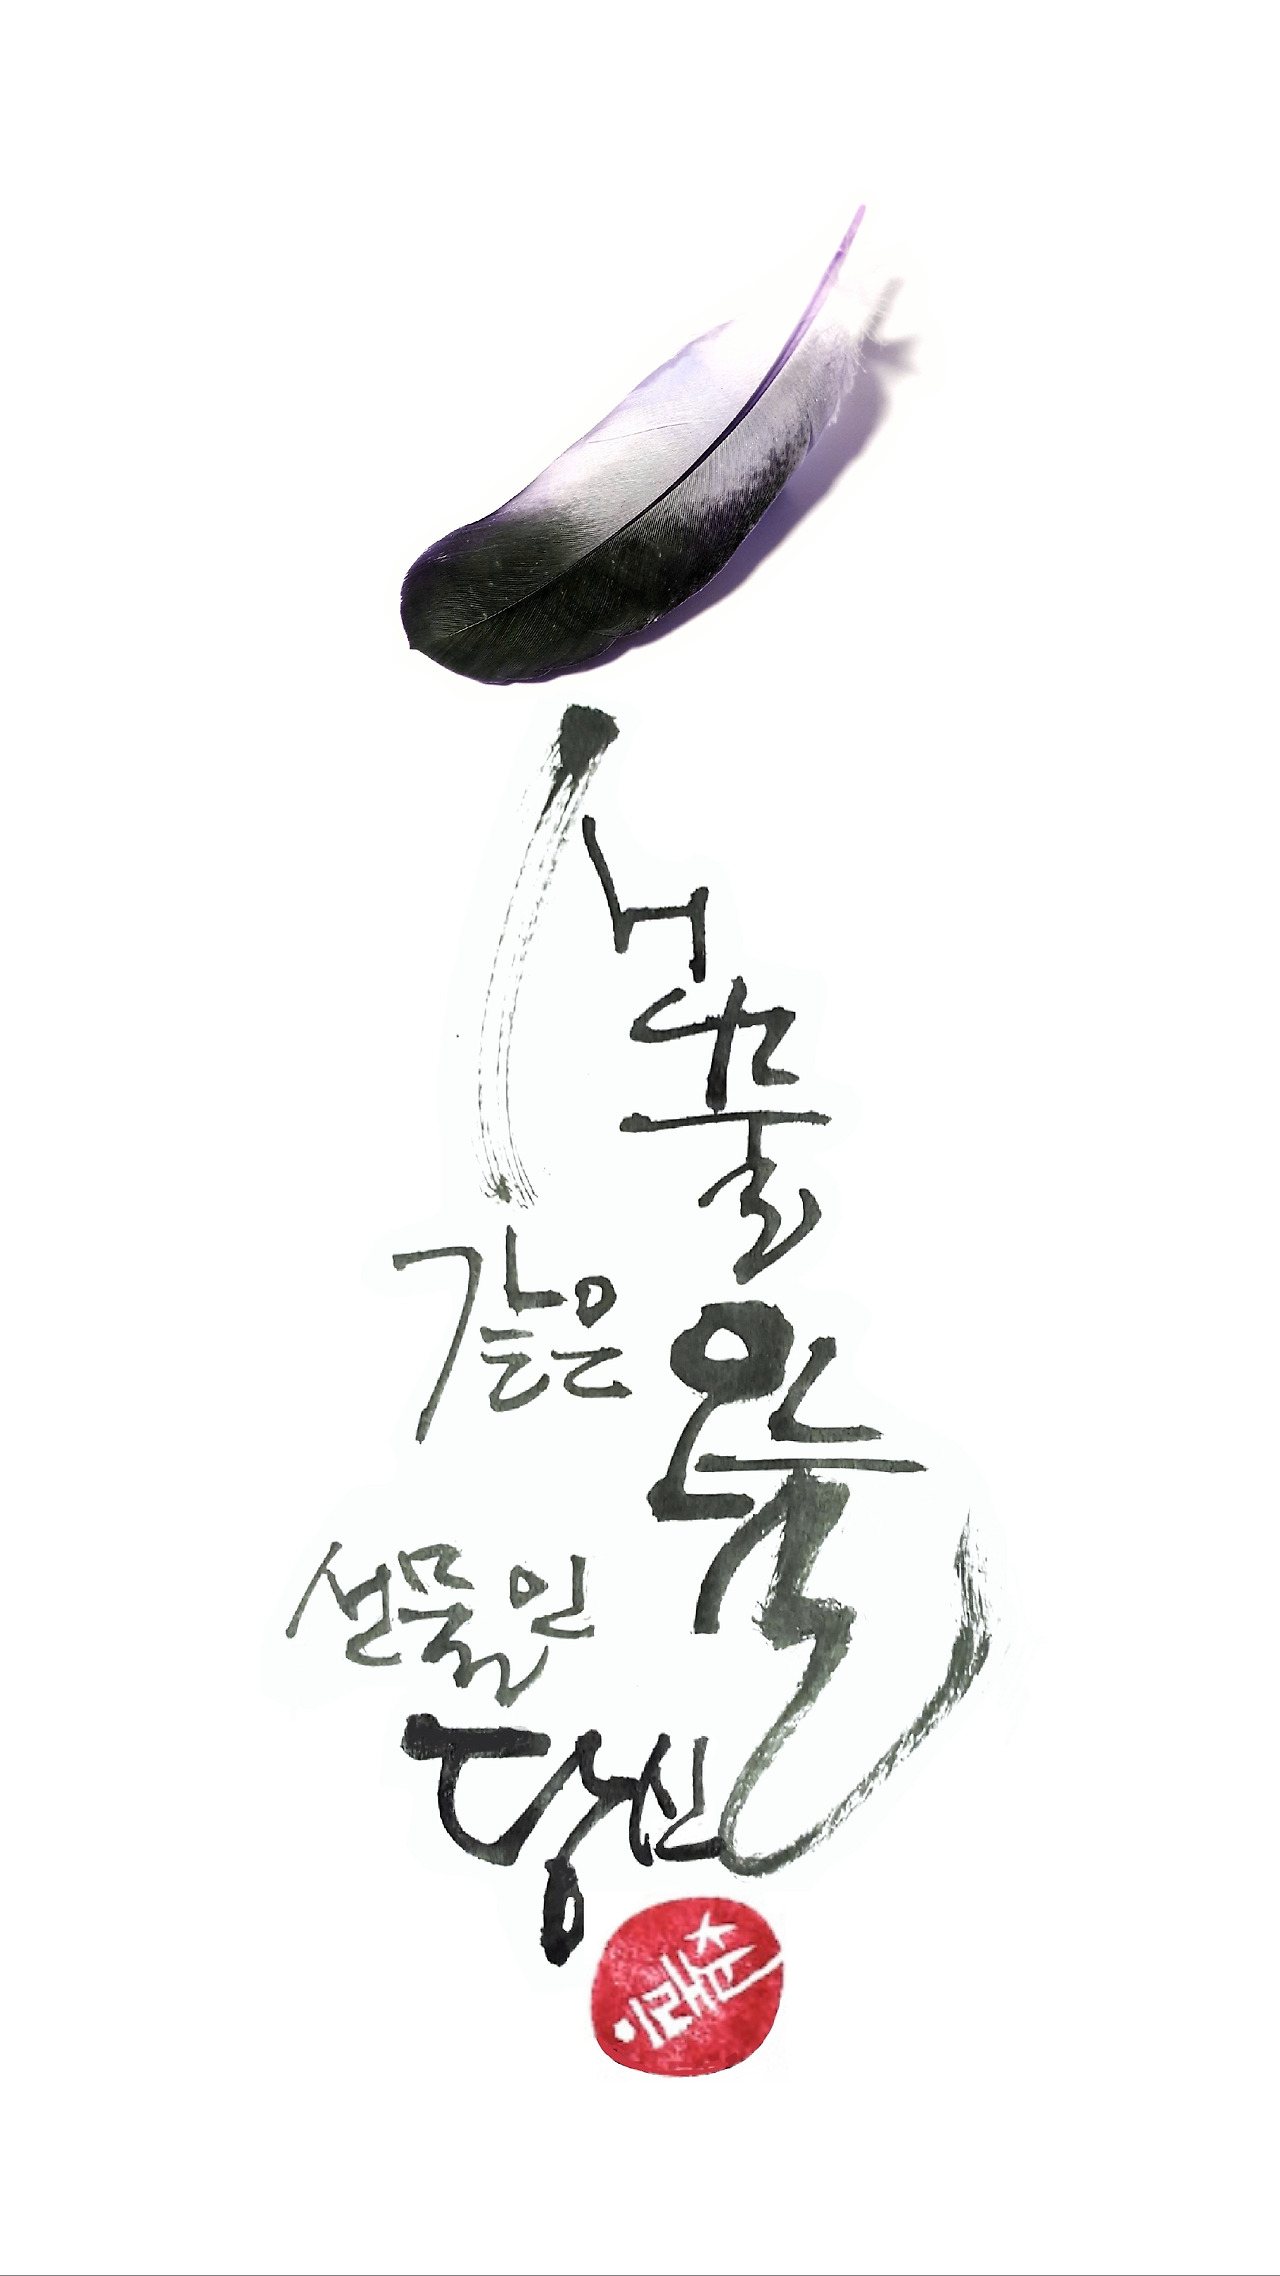 선물
같은
오늘
선물인
당신
이래춘